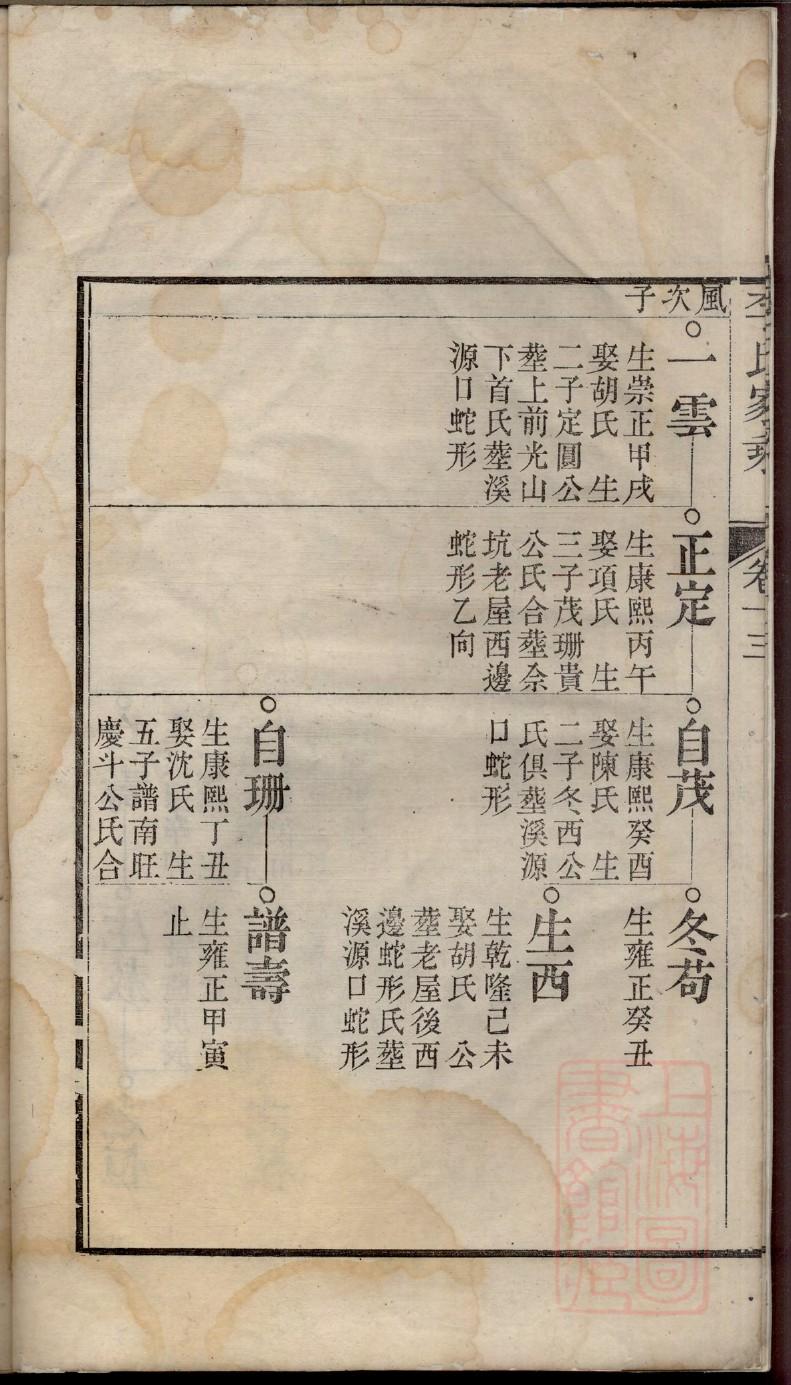 李氏家乘
卷十三
風次子
一雲
生崇正甲戌
娶胡氏 生
二子定圓公
塟上前光山
下首氏塟溪
源口蛇形
正定
生康熙丙午
娶項氏 生
三子茂珊貴
公氏合塟佘
坑老屋西邊
蛇形乙向
自茂
生康熙癸酉
娶陳氏 生
二子冬西公
氏俱塟溪源
口蛇形
自珊
生康熙丁丑
娶沈氏 生
五子譜南旺
慶斗公氏合
冬苟
生雍正癸丑
生西
生乾隆己未
娶胡氏 公
塟老屋後西
邊蛇形氏塟
溪源口蛇形
譜壽
生雍正甲寅
止
上海圖
書館藏